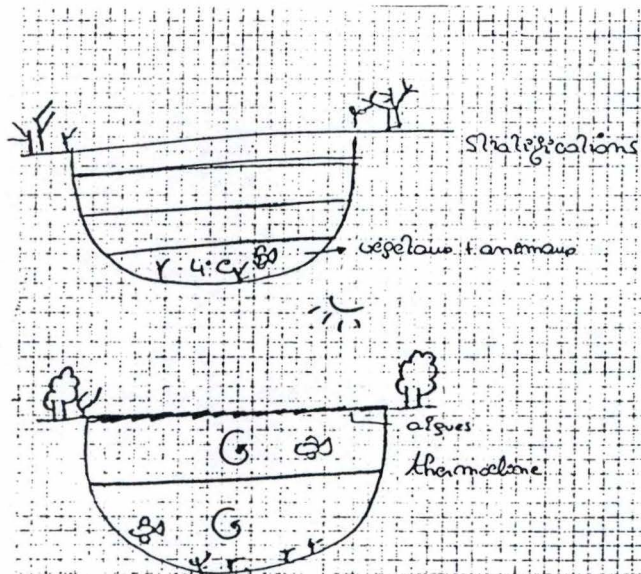 stratifications
végétaux + animaux
4°C
algues
thermocline